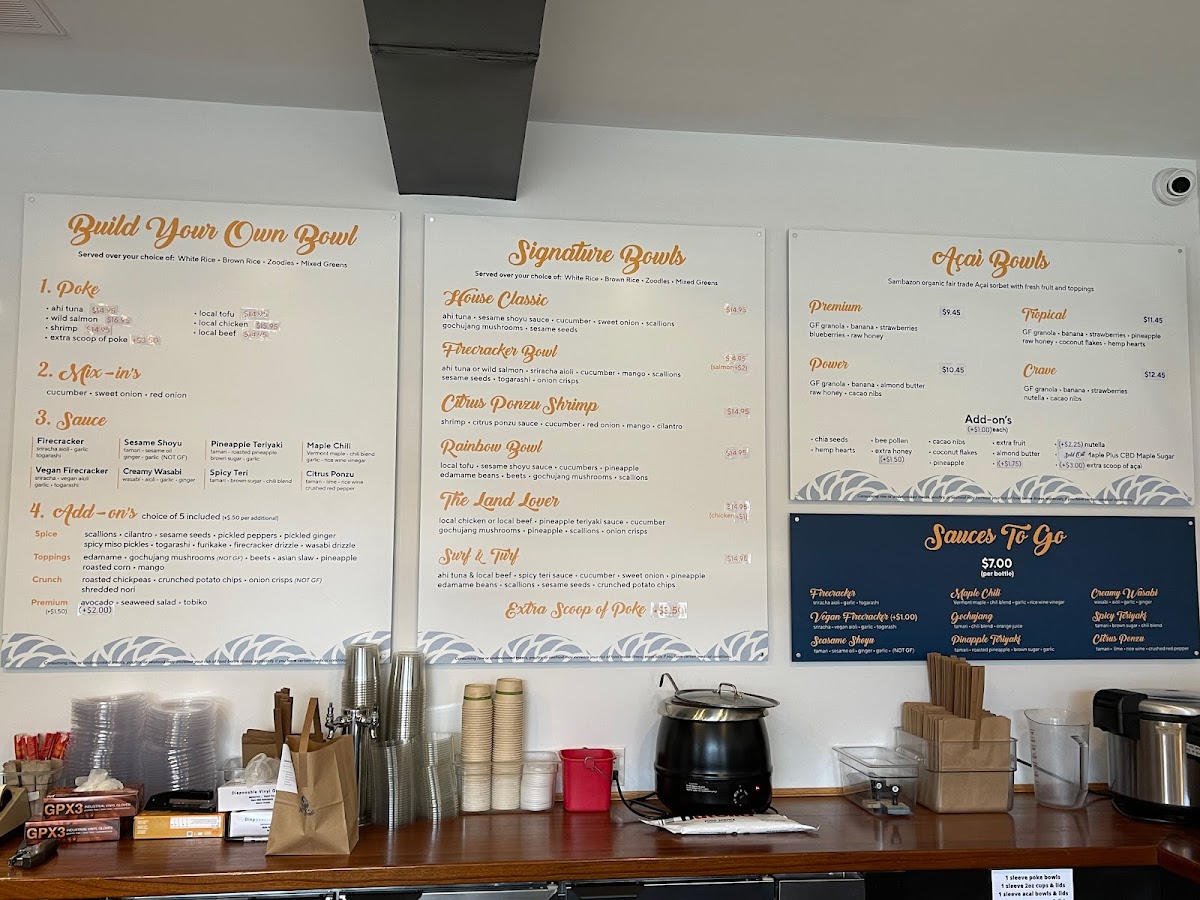 Build Your Own Bowl
Served over your choice of: White Rice • Brown Rice • Zoodles • Mixed Greens
1. Poke
• ahi tuna $14.95
• wild salmon $16.95
• shrimp $14.95
• extra scoop of poke +$3.50
• local tofu $14.95
• local chicken $15.95
• local beef $14.95
2. Mix-in's
cucumber • sweet onion • red onion
3. Sauce
Firecracker
sriracha aioli • garlic
togarashi
Sesame Shoyu
tamari • sesame oil
ginger • garlic (NOT GF)
Pineapple Teriyaki
tamari • roasted pineapple
brown sugar • garlic
Maple Chili
Vermont maple • chili blend
garlic • rice wine vinegar
Vegan Firecracker
sriracha • vegan aioli
garlic • togarashi
Creamy Wasabi
wasabi • aioli • garlic • ginger
Spicy Teri
tamari • brown sugar • chili blend
Citrus Ponzu
tamari • lime • rice wine
crushed red pepper
4. Add-on's choice of 5 included (+$.50 per additional)
Spice scallions • cilantro • sesame seeds • pickled peppers • pickled ginger
spicy miso pickles • togarashi • furikake • firecracker drizzle • wasabi drizzle
Toppings edamame • gochujang mushrooms (NOT GF) • beets • asian slaw • pineapple
roasted corn • mango
Crunch roasted chickpeas • crunched potato chips • onion crisps (NOT GF)
shredded nori
Premium avocado • seaweed salad • tobiko
(+$1.50) (+$2.00)
Signature Bowls
Served over your choice of: White Rice • Brown Rice • Zoodles • Mixed Greens
House Classic $14.95
ahi tuna • sesame shoyu sauce • cucumber • sweet onion • scallions
gochujang mushrooms • sesame seeds
Firecracker Bowl $14.95
(salmon+$2)
ahi tuna or wild salmon • sriracha aioli • cucumber • mango • scallions
sesame seeds • togarashi • onion crisps
Citrus Ponzu Shrimp $14.95
shrimp • citrus ponzu sauce • cucumber • red onion • mango • cilantro
Rainbow Bowl $14.95
local tofu • sesame shoyu sauce • cucumbers • pineapple
edamame beans • beets • gochujang mushrooms • scallions
The Land Lover $14.95
(chicken+$1)
local chicken or local beef • pineapple teriyaki sauce • cucumber
gochujang mushrooms • pineapple • scallions • onion crisps
Surf & Turf $14.95
ahi tuna & local beef • spicy teri sauce • cucumber • sweet onion • pineapple
edamame beans • scallions • sesame seeds • crunched potato chips
Extra Scoop of Poke +$3.50
Açaì Bowls
Sambazon organic fair trade Açai sorbet with fresh fruit and toppings
Premium $9.45
GF granola • banana • strawberries
blueberries • raw honey
Tropical $11.45
GF granola • banana • strawberries • pineapple
raw honey • coconut flakes • hemp hearts
Power $10.45
GF granola • banana • almond butter
raw honey • cacao nibs
Crave $12.45
GF granola • banana • strawberries
nutella • cacao nibs
Add-on's
(+$1.00)each)
• chia seeds
• hemp hearts
• bee pollen
• extra honey
(+$1.50)
• cacao nibs
• coconut flakes
• pineapple
• extra fruit
• almond butter
(+$1.75)
• (+$2.25) nutella
Maple Plus CBD Maple Sugar
• (+$3.00) extra scoop of açai
Sauces To Go
$7.00
(per bottle)
Firecracker
sriracha aioli • garlic • togarashi
Vegan Firecracker (+$1.00)
sriracha • vegan aioli • garlic • togarashi
Seasame Shoyu
tamari • sesame oil • ginger • garlic • (NOT GF)
Maple Chili
Vermont maple • chili blend • garlic • rice wine vinegar
Gochujang
tamari • chili blend • orange juice
Pineapple Teriyaki
tamari • roasted pineapple • brown sugar • garlic
Creamy Wasabi
wasabi • aioli • garlic • ginger
Spicy Teriyaki
tamari • brown sugar • chili blend
Citrus Ponzu
tamari • lime • rice wine • crushed red pepper
GPX3 INDUSTRIAL VINYL GLOVES
GPX3
Disposable Vinyl
1 sleeve poke bowls
1 sleeve 2oz cups & lids
1 sleeve acai bowls & lids